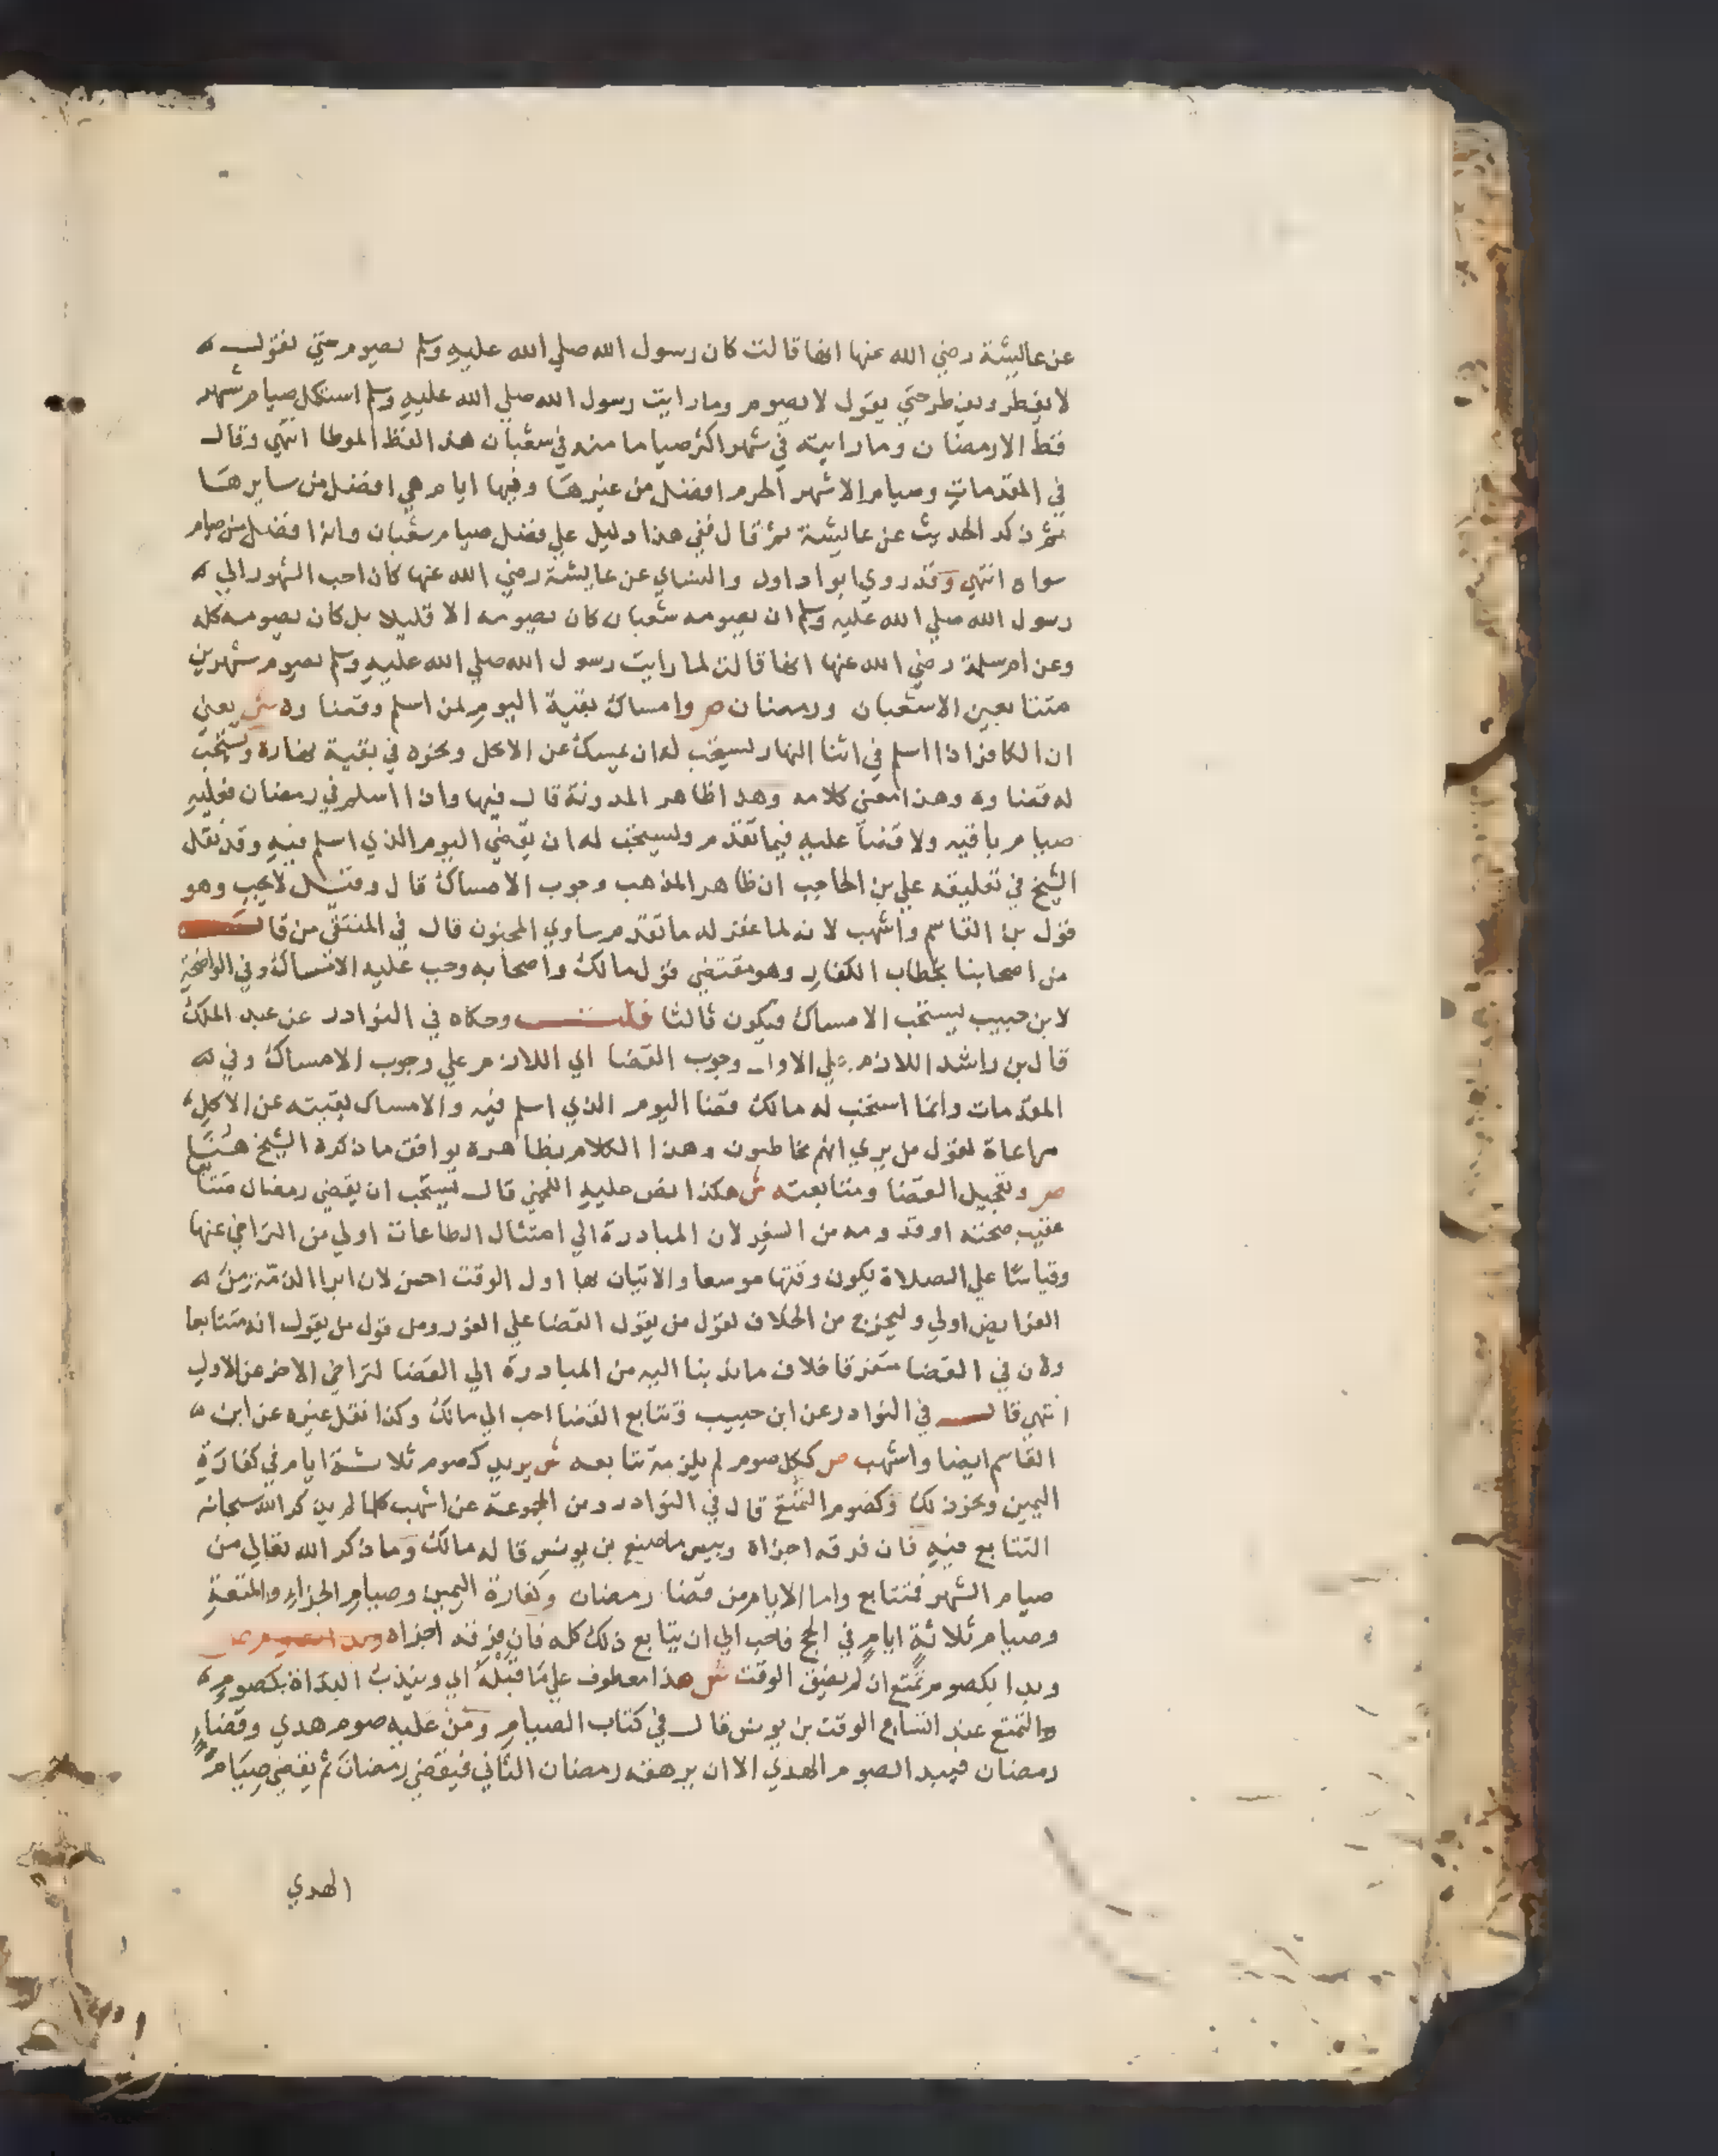 عن عايشة رضي الله عنها انها قالت كان رسول الله صلي الله عليه وسلم يصوم حتي نقول
لا يفطر ويفطر حتي يقول لا يصوم وما رايت رسول الله صلي الله عليه وسلم استكمل صيام شهر
قط الا رمضان وما رايته في شهر اكثر صياما منه في شعبان هذا لفظ الموطا انتهي وقال
في المقدمات وصيام الاشهر الحرم افضل من غيرها وفيها ايام هي افضل من سايرها
ثم ذكر الحديث عن عايشة ثم قال ففي هذا دليل علي فضل صيام شعبان وانه افضل من صيام
سواه انتهي وقد روي ابوا داود والنساي عن عايشة رضي الله عنها كان احب الشهور الي
رسول الله صلي الله عليه وسلم ان يصومه شعبان كان يصومه الا قليلا بل كان يصومه كله
وعن ام سلمة رضي الله عنها انها قالت لما رايت رسول الله صلي الله عليه وسلم يصوم شهرين
متتابعين الا شعبان ورمضان ص وامساك بقية اليوم لمن اسلم وقضاوه ش يعني
ان الكافر اذا اسلم في اثنا النهار يستحب له ان يمسك عن الاكل ونحوه في بقية نهاره ويستحب
له قضاوه وهذا معني كلامه وهذا ظاهر المدونة قال فيها واذا اسلم في رمضان فعليه
صيام باقيه ولا قضا عليه فيما تقدم ويستحب له ان يقضي اليوم الذي اسلم فيه وقد نقل
الشيخ في تعليقه علي بن الحاجب ان ظاهر المذهب وجوب الامساك قال وقيل لا يجب وهو
قول بن القاسم واشهب لانه لما غفر له ما تقدم ساوي المجنون قال في المنتقي من قال
من اصحابنا بخطاب الكفار وهو مقتضي قول مالك واصحابه وجب عليه الامساك وفي الواضحة
لابن حبيب يستحب الامساك فيكون ثالثا قلت وحكاه في النوادر عن عبد الملك
قال بن راشد اللازم علي الاول وجوب القضا اي اللازم علي وجوب الامساك وفي
المقدمات وانما استحب له مالك قضا اليوم الذي اسلم فيه والامساك بقيته عن الاكل
مراعاة لقول من يري انهم مخاطبون وهذا الكلام بظاهره يوافق ما ذكره الشيخ هنا
ص وتعجيل القضا ومتابعته ش هكذا نص عليه اللخمي قال يستحب ان يقضي رمضان متتابعا
عقيب صحته او قدومه من السفر لان المبادرة الي امتثال الطاعات اولي من التراخي عنها
وقياسا علي الصلاة يكون وقتها موسعا والاتيان بها اول الوقت احسن لان ابرا الذمة من
الفرايض اولي وليخرج من الخلاف لقول من يقول القضا علي الفور ومن قول من يقول انه متتابعا
ولان في القضا متفرقا خلاف ما ندبنا اليه من المبادرة الي القضا لتراخي الاخر عن الاول
انتهي قال في النوادر عن ابن حبيب وتتابع القضا احب الي مالك وكذا نقل غيره عن ابن
القاسم ايضا واشهب ص ككل صوم لم يلزمه تتابعه ش يريد كصوم ثلاثة ايام في كفارة
اليمين ونحو ذلك وكصوم التمتع قال في النوادر ومن المجموعة عن اشهب كلما لم يذكر الله سبحانه
التتابع فيه فان فرقه اجزاه وبيس ما صنع بن يونس قاله مالك وما ذكر الله تعالي من
صيام الشهر فمتتابع واما الايام من قضا رمضان وكفارة اليمين وصيام الجزاء والمتعة
وصيام ثلاثة ايام في الحج فاحب الي ان يتابع ذلك كله فان فرقه اجزاه
وبدا بكصوم تمتع ان لم يضق الوقت ش هذا معطوف علي ما قبله اي ويندب البداة بكصوم
والتمتع عند اتساع الوقت بن يونس قال في كتاب الصيام ومن عليه صوم هدي وقضاء
رمضان فيبدا لصوم الهدي الا ان يرهقه رمضان الثاني فيقضي رمضان ثم يقضي صيام
الهدي